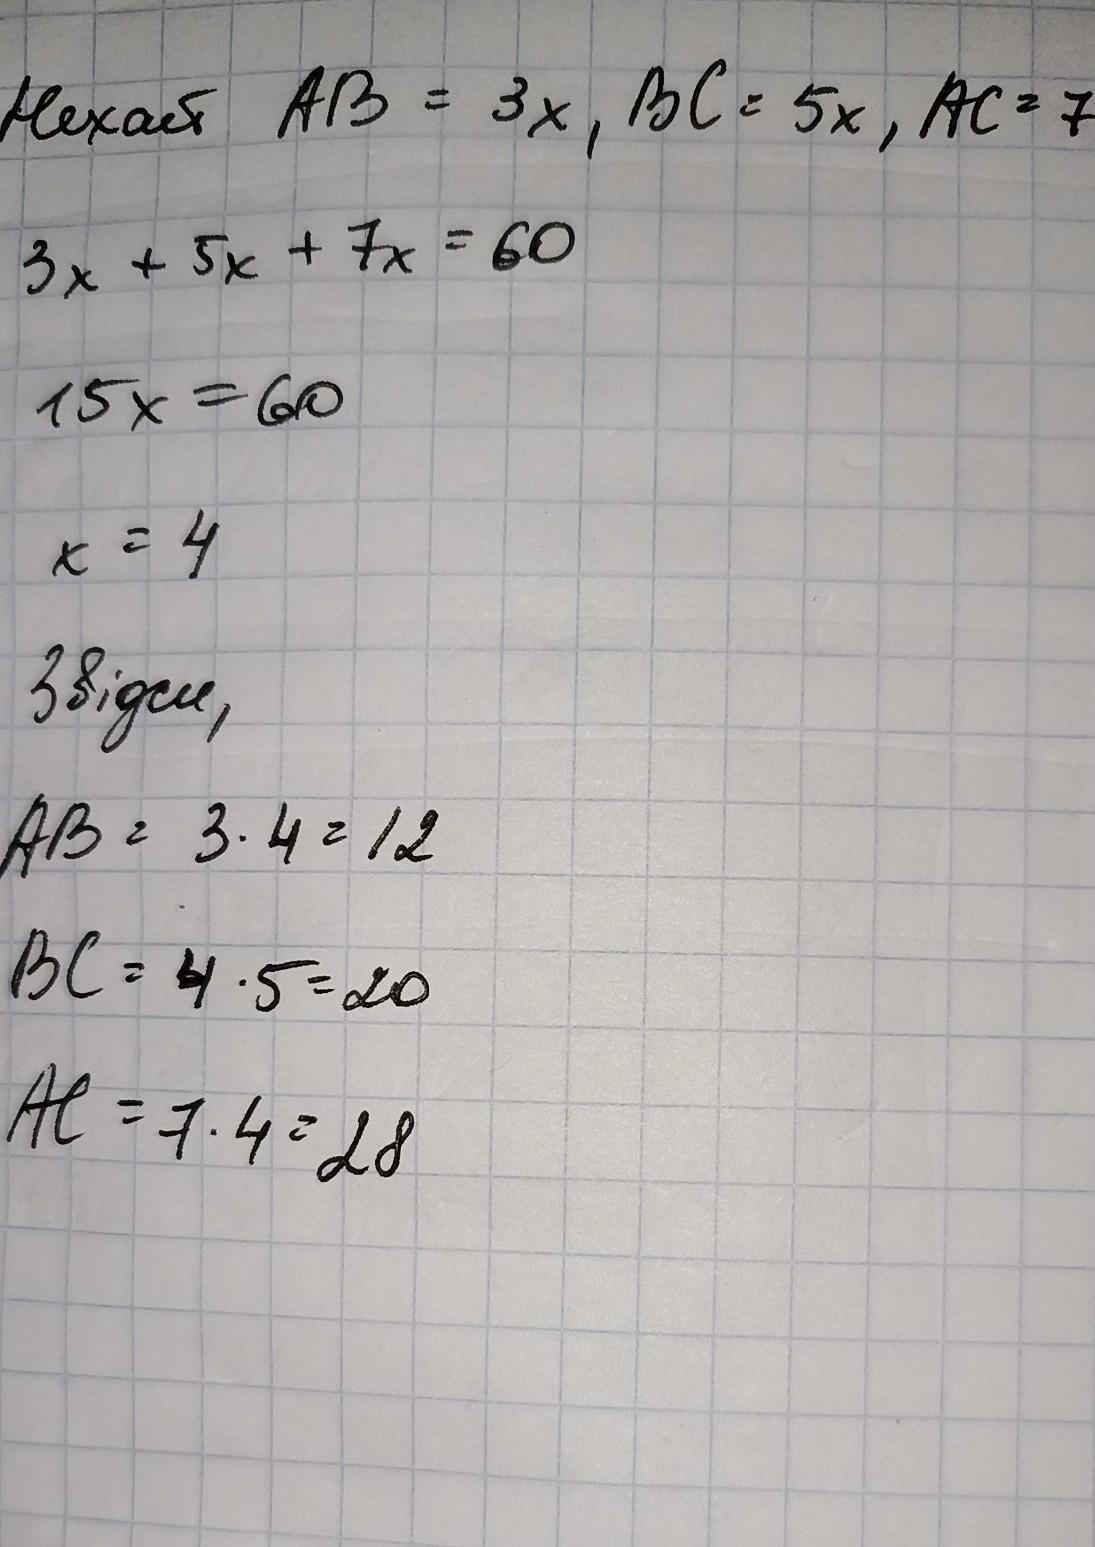 Нехай AB = 3x, BC = 5x, AC = 7
3x + 5x + 7x = 60
15x = 60
x = 4
Звідси,
AB = 3 · 4 = 12
BC = 4 · 5 = 20
AC = 7 · 4 = 28